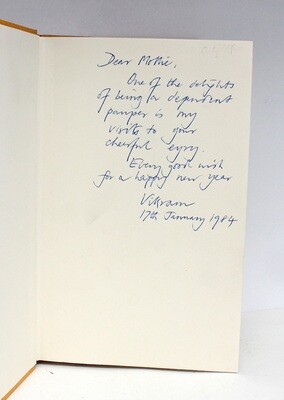 Dear Mollie,
One of the delights
of being a dependent
pauper is my
visits to your
cheerful eyry.
Every good wish
for a happy new year
Vikram
17th January 1984